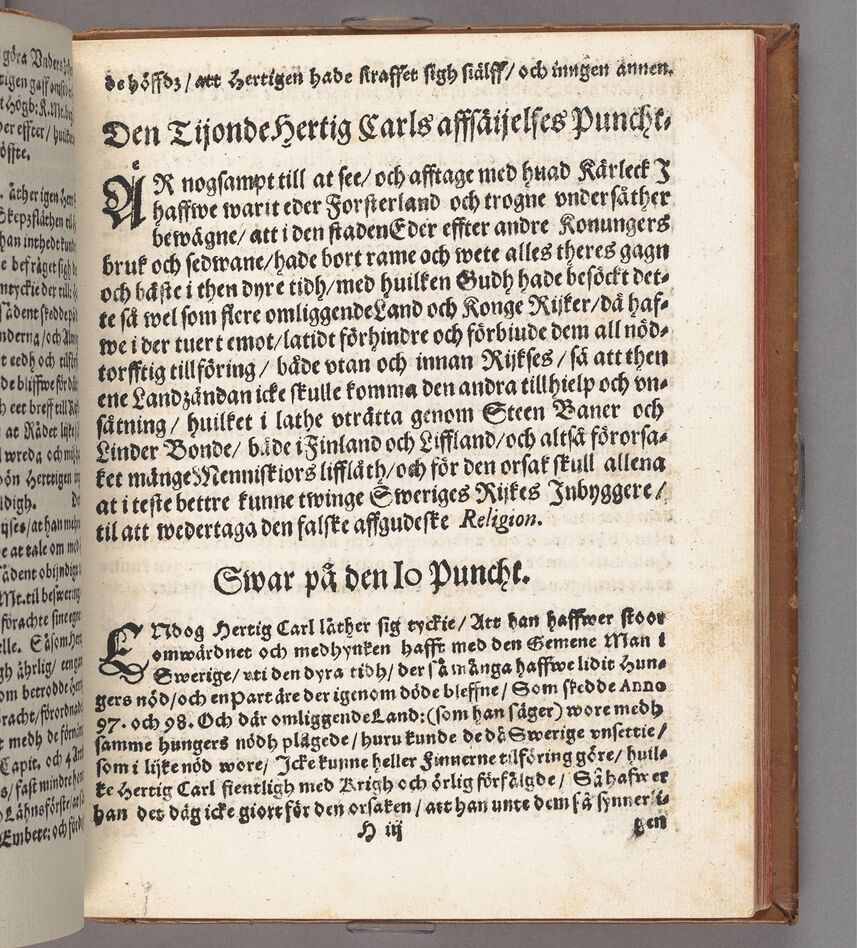 göra Vnders
tigen gaff
t Hogb: K. M:
der effter / huilken
öffte.
äther igen
Skepzfläthen
han inthedt kund
e befråget sigh
ntyckie der till
sådent skedde på
nderna / och
t eedh och
de bliffwe för
eet breff till
at Rådet
wreda och
ön Herttigen
ldigh.
yses / at han
e at tale om
sådent obijndigt
Mt. til beswering
förachte sine egne
elle. Såsom
gh ährlig /
om betrodde
racht / förordnade
t medh de
Capit. och 4
s / fast mindre
Lähnsförste /
Embete: och
de höffdz / att Hertigen hade straffet sigh siälff / och inngen annen.
Den Tijonde Hertig Carls affsäijelses Puncht.
ÄR nogsampt till at see / och afftage med huad Kärleck I
haffwe warit eder Forsterland och trogne vndersåther
bewägne / att i den staden Eder effter andre Konungers
bruk och sedwane / hade bort rame och wete alles theres gagn
och bäste i then dyre tidh / med huilken Gudh hade besöckt det-
te så wel som flere omliggende Land och Konge Rijker / då haf-
we i der tuert emot / latidt förhindre och förbiude dem all nöd-
torfftig tillföring / både vtan och innan Rijkses / så att then
ene Landzändan icke skulle komma den andra till hielp och vn-
sätning / huilket i lathe vträtta genom Steen Baner och
Linder Bonde / både i Finland och Liffland / och altså förorsa-
ket mänge Menniskiors liffläth / och för den orsak skull allena
at i teste bettre kunne twinge Sweriges Rijkes Inbyggere /
til att wedertaga den falske affgudeske Religion.
Swar på den 10 Puncht.
ENdog Hertig Carl läther sig tyckie / Att han haffwer stoor
omwårdnet och medhynken hafft med den Gemene Man i
Swerige / vti den dyra tidh / der så många haffwe lidit Hun-
gers nöd / och en Part äre der igenom döde bleffne / Som skedde Anno
97. och 98. Och där omliggende Land: (som han säger) wore medh
samme hungers nödh plågede / huru kunde de då Swerige vnsettie /
som i lijke nöd wore / Icke kunne heller Finnerne tilföring göre / huil-
ke Hertig Carl fientligh med Krigh och örlig förfälgde / Så hafwer
han det däg icke giort för den orsaken / att han unte dem så synnerli-
H iij
gen